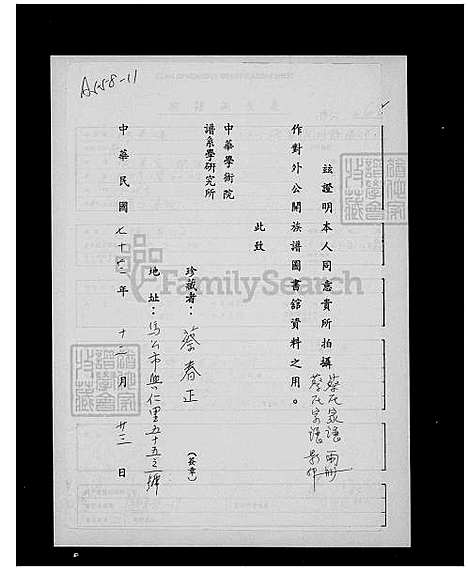 A558-11
茲證明本人同意貴所拍攝蔡氏家譜兩册
蔡氏宗譜影印
作對外公開族譜圖書館資料之用。
此致
中華學術院
譜系學研究所
珍藏者：蔡春正（簽章）
地址：馬公市興仁里五十五之一號
中華民國七十三年十二月廿三日
FamilySearch